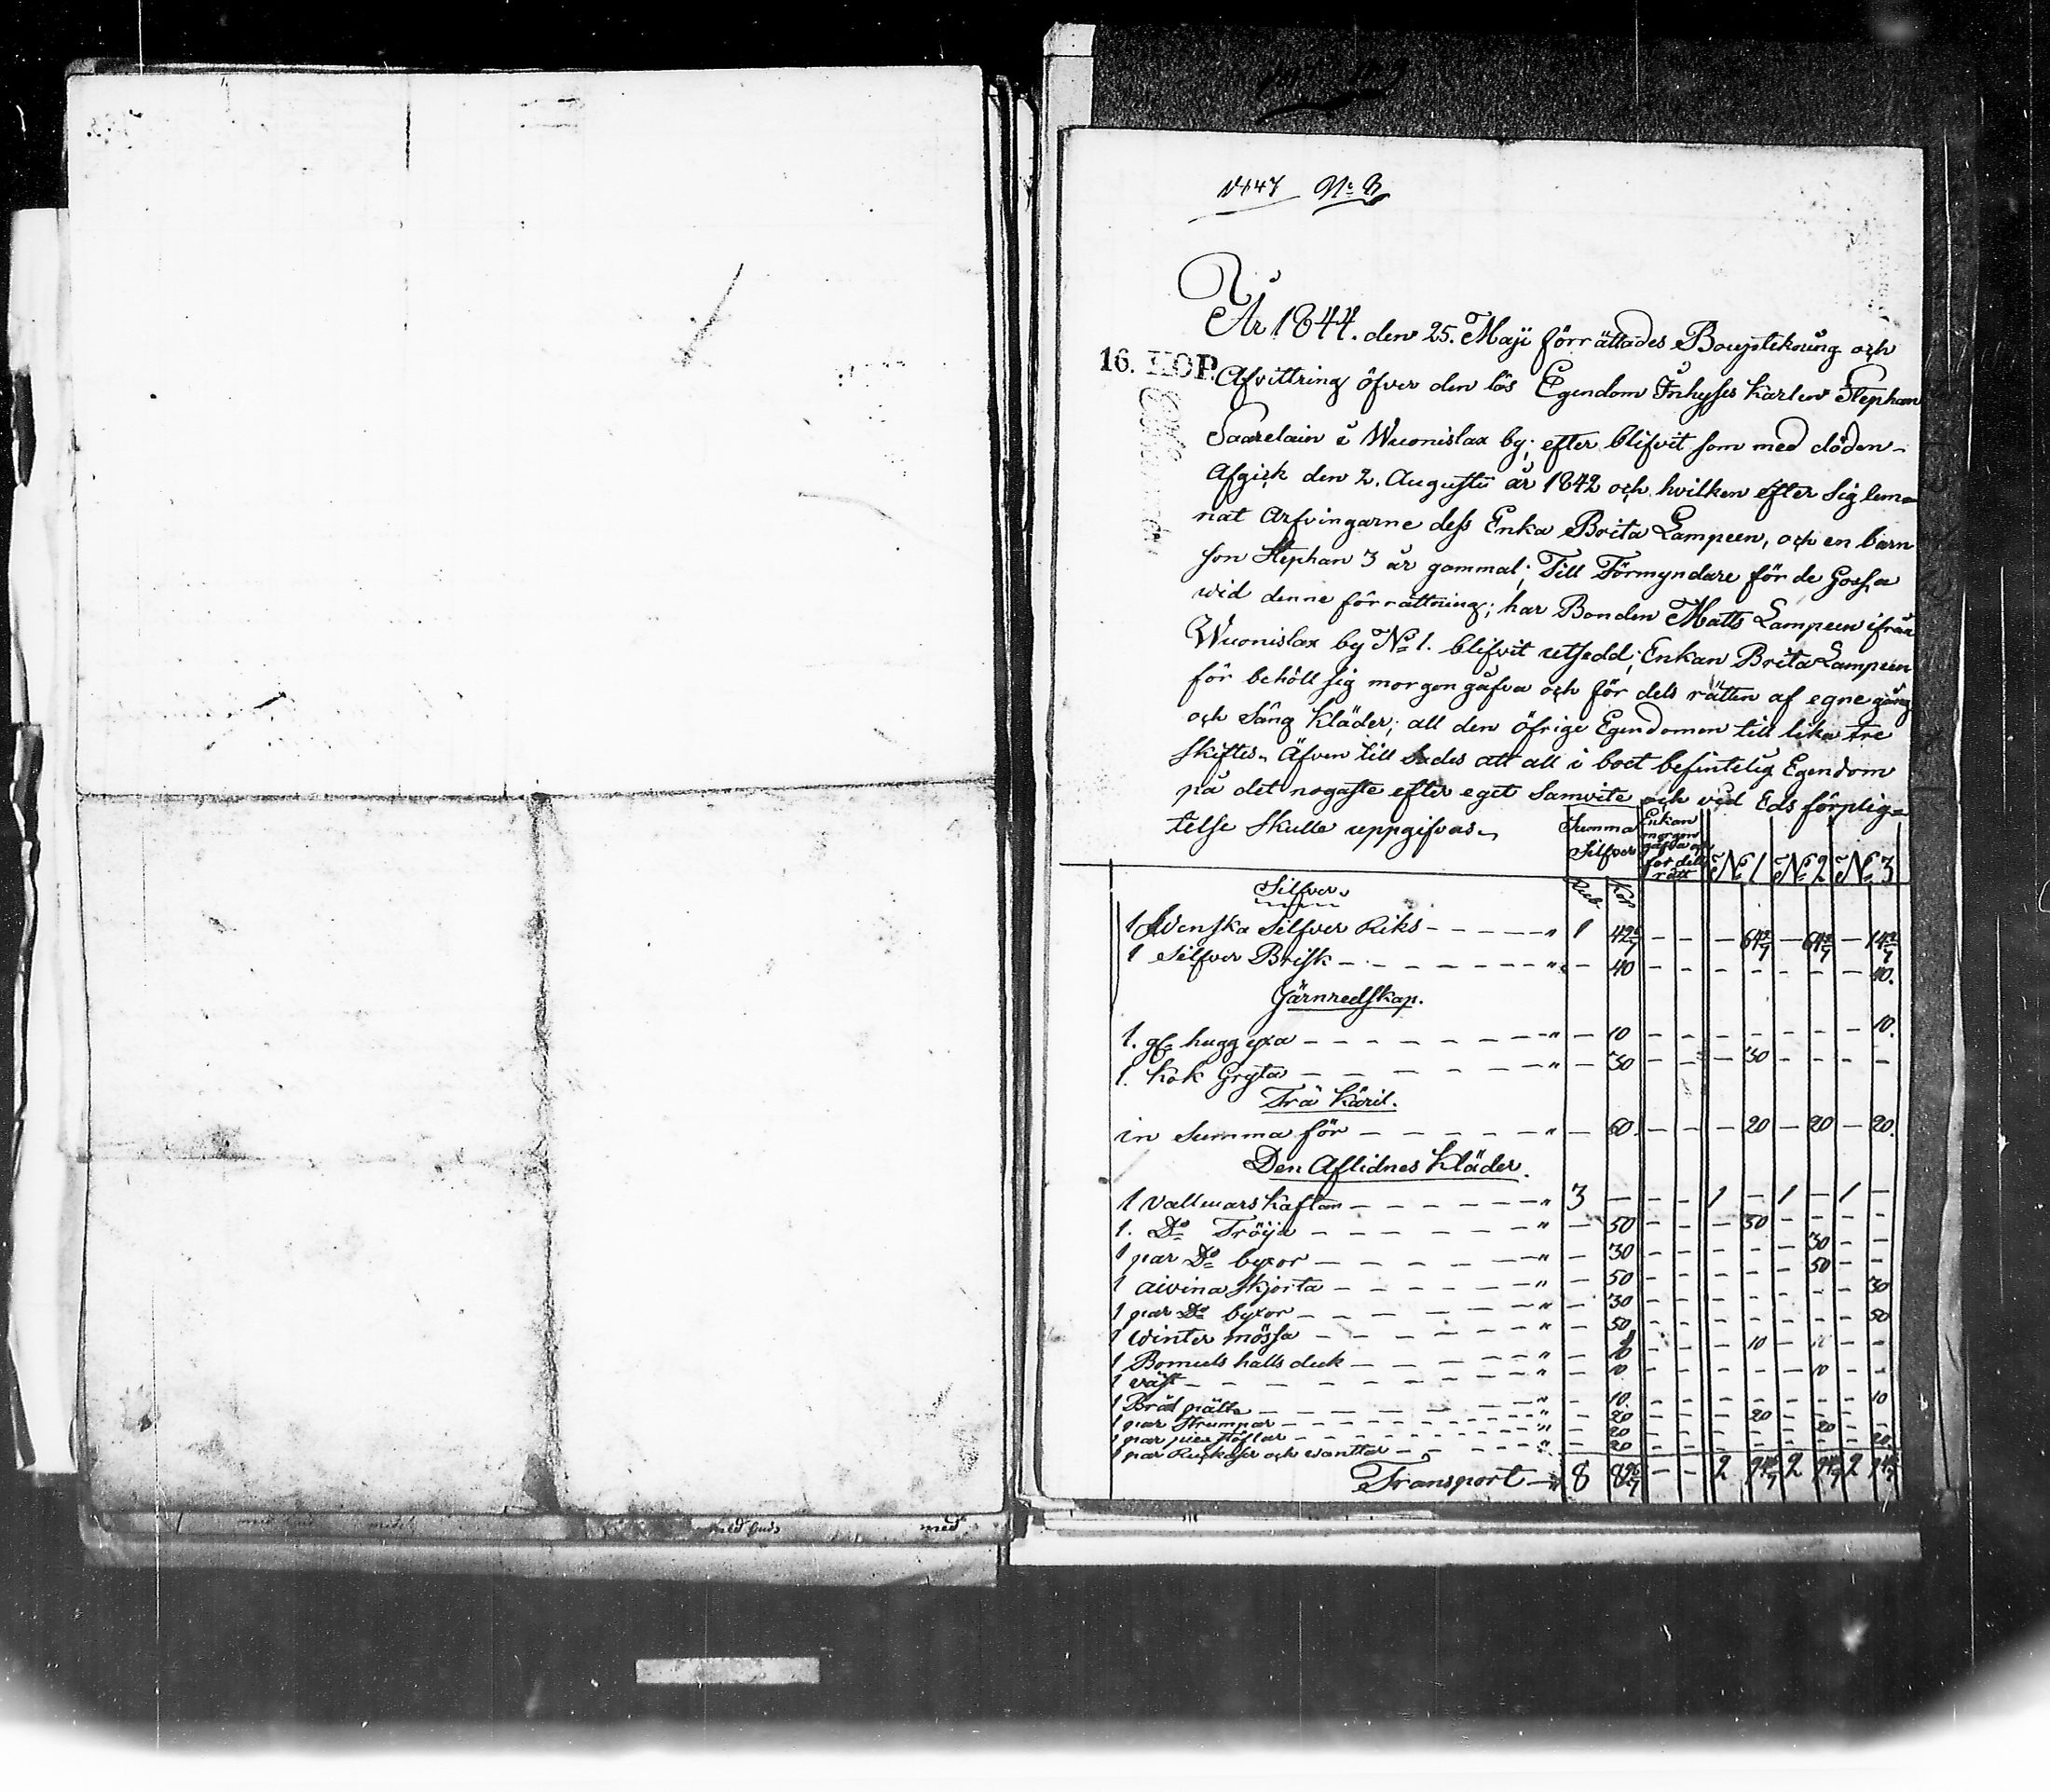 1847 No 3
År 1844. den 25. Maji förrättades Boupptekning och
16. KOP.
Afvittring öfver den lös Egendom Inhyses karlen Stephan
Saarelain i Wuonislax by; efter blifvit som med döden
Afgick den 2. Augusti år 1842 och hvilken efter sig lem=
nat Arfvingarne dess Enka Brita Lampeen, och en barn
son Stephan 3 år gammal; Till Förmyndare för de Gossa
wid denne förrättning; har Bonden Matts Lampeen ifrån
Wuonislax by No 1. blifvit utsedd; Enkan Brita Lampeen
för behöll sig morgon gåfva och för dels rätten af egne gång
och Säng kläder; all den öfrige Egendomen till lika tre
skiftes. Äfven till sades att all i boet befintelig Egendom
på det nogaste efter eget Samvite och vid Eds förplig=
telse skulle uppgifvas.
Summa Silfver Enkan morgon gåfva och for dels rätt No 1 No 2 No 3
Silfver Rub Kop
1 Svenska Silfver Riks - - - " 1 42 6/7 - - - 64 2/7 - 64 2/7 - 14 2/7
1 Silfver Brisk - - - " - 40 - - - - - - - 40.
Järnredskap.
1. gl. hugg yxa - - - " - 10 - - - - - - - 10.
1. kok Gryta - - - " - 30 - - - 30 - - - -
Trä Käril.
in Summa för - - - " - 60. - - - 20 - 20 - 20.
Den Aflidnes Kläder.
1 vallmars kaftan - - - " 3 - - - 1 - 1 - 1 -
1. Do Tröija - - - " - 50 - - - 50 - - - -
1 par Do byxor - - - " - 30 - - - - - 30 - -
1 aivina skjorta - - - " - 50 - - - - - 50 - -
1 par Do byxor - - - " - 30 - - - - - - - 30
1 winter mössa - - - " - 50 - - - - - - - 50
1 Bomuls halls duk - - - " - 10 - - - 10 - - - -
1 väst - - - " - 10 - - - - - 10 - -
1 Brät - - - " - 10. - - - - - - - 10
1 par strumpor - - - " - 20 - - - 20 - - - -
1 par - - - " - 20 - - - - - 20 - -
1 par och wanttar - - - " - 20 - - - - - - - 20
Transport - " 8 82 6/7 - - 2 94 2/7 2 94 2/7 2 94 2/7
med